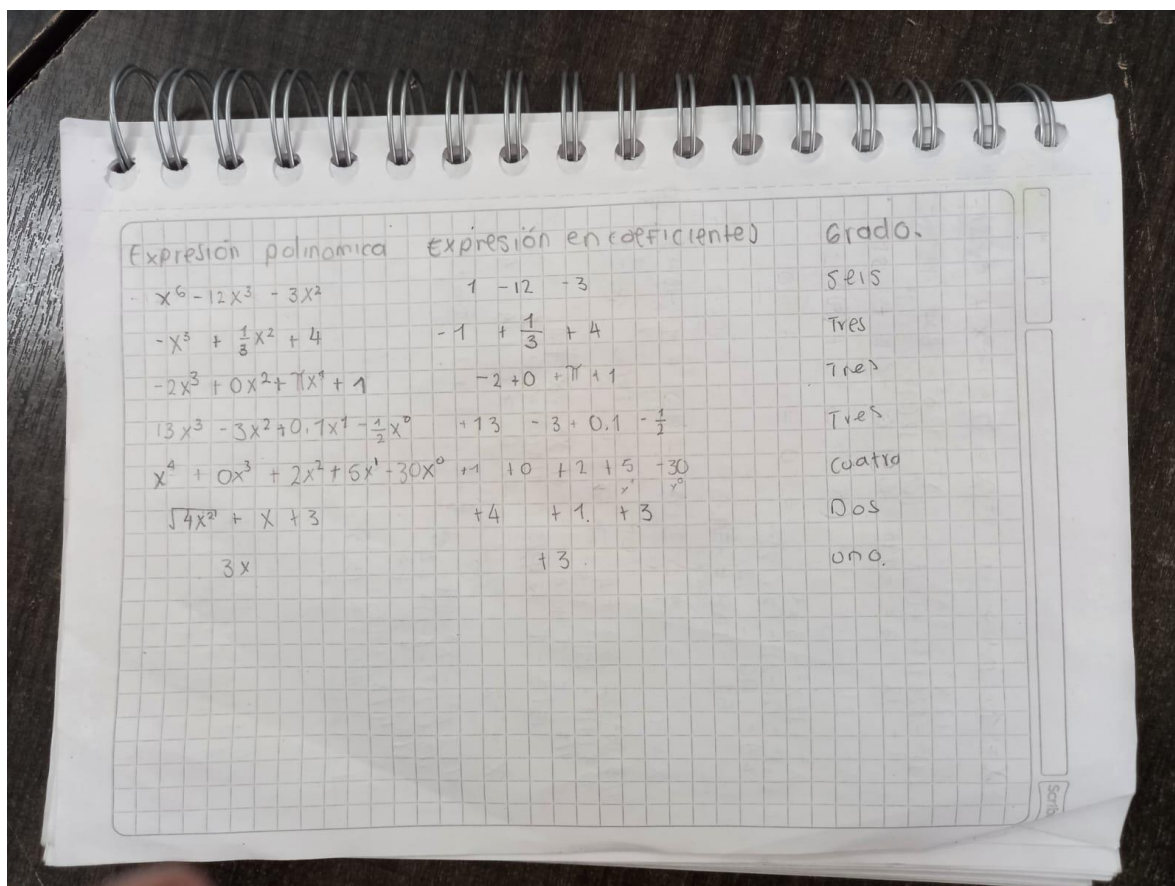 Expresión polinomica expresión en coeficientes Grado.
x⁶ - 12x³ - 3x² 1 -12 -3 seis
-x³ + 1/3 x² + 4 -1 + 1/3 + 4 Tres
-2x³ + 0x² + πx¹ + 1 -2 +0 + π + 1 Tres
13x³ - 3x² + 0.1x¹ - 1/2 x⁰ +13 - 3 + 0.1 - 1/2 Tres
x⁴ + 0x³ + 2x² + 5x¹ - 30x⁰ +1 +0 + 2 + 5 -30 cuatro
x¹ x⁰
√4x² + x + 3 +4 +1. +3 Dos
3x +3. uno.
Scribe